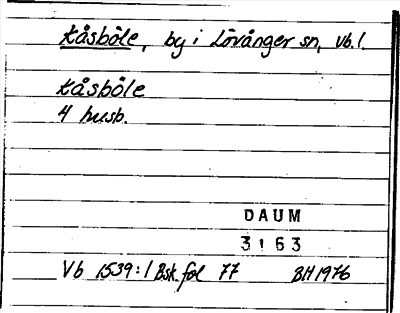 Kåsböle, by i Lövånger sn, Vb.l.
Kåsböle
4 husb.
DAUM
3163
Vb 1539:1 Bsk. fol 77 BH 1976